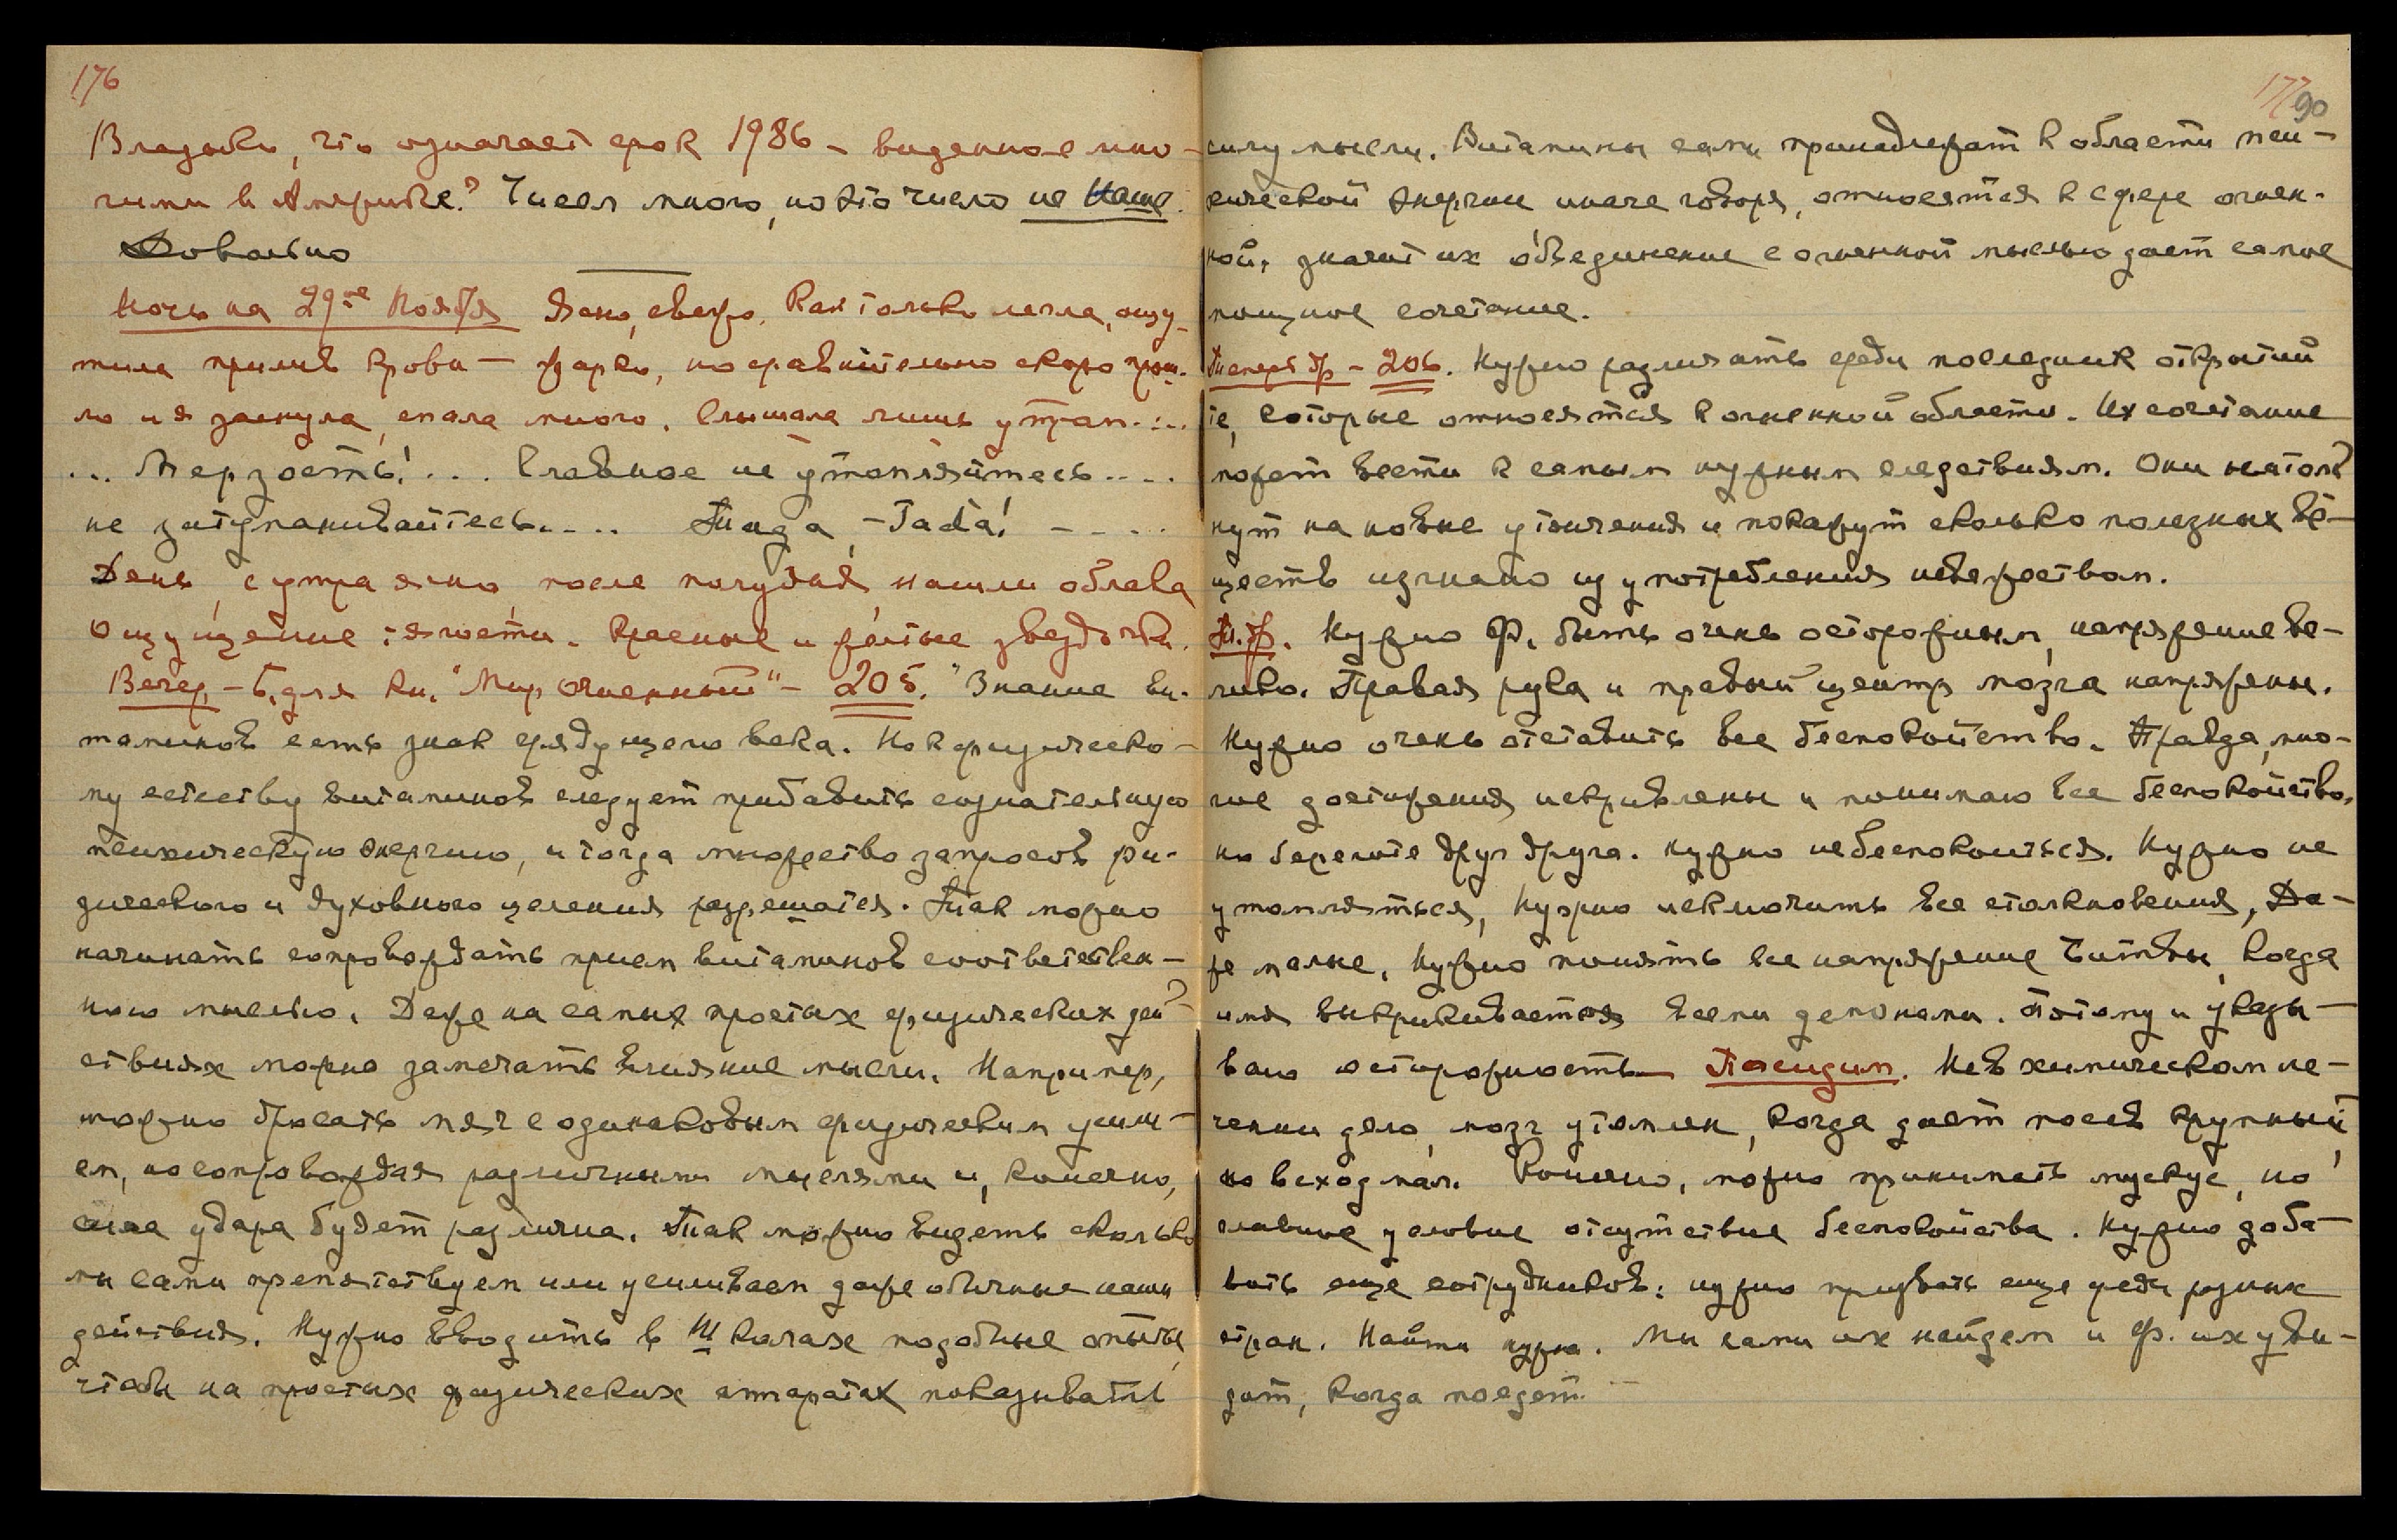 176
Владыка, что означает срок 1986 – виденное мно-
гими в Америке? Чисел много, но это число не Наше.
Довольно
Ночь на 29-ое Ноября Ясно, свежо. Как только легла, ощу-
тила прилив крови – жарко, но сравнительно скоро прош-
ло и я заснула, спала много. Слышала лишь утром....
... Мерзость!... Главное не утомляйтесь....
не затуманивайтесь.... Тада, – Tada! – ...
День, с утра ясно, после полудня нашли облака
Ощущение тяжести. Красные и желтые звездочки.
Вечер, – Б. для кн. "Мир Огненный" – 205. "Знание ви-
таминов есть знак грядущего века. Но к физическо-
му естеству витаминов следует прибавить сознательную
психическую энергию, и тогда множество запросов фи-
зического и духовного целения разрешатся. Так можно
начинать сопровождать прием витаминов соответствен-
ною мыслью. Даже на самых простых физических дей-
ствиях можно замечать влияние мысли. Например,
можно бросать мяч с одинаковым физическим усили-
ем, но сопровождая различными мыслями и, конечно,
сила удара будет различна. Так можно видеть сколько
мы сами препятствуем или усиливаем даже обычные наши
действия. Нужно вводить в Школах подобные опыты,
чтобы на простых физических аппаратах показывать
177
90
силу мысли. Витамины сами принадлежат к области пси-
хической энергии иначе говоря, относятся к сфере огнен-
ной, значит их объединение с огненной мыслью дает самое
мощное сочетание.
Теперь др – 206. Нужно различать среди последних открытий
те, которые относятся к огненной области. Их сочетание
может вести к самым нужным следствиям. Они натолк-
нут на новые утончения и покажут сколько полезных ве-
ществ изгнано из употребления невежеством.
Т. др. Нужно Ф. быть очень осторожным, напряжение ве-
лико. Правая рука и правый центр мозга напряжены.
Нужно очень отставить все беспокойство. Правда, мно-
гие достижения искривлены и понимаю все беспокойство,
но берегите друг друга. Нужно не беспокоиться. Нужно не
утомляться, Нужно исключить все столкновения, Да-
же малые, Нужно понять все напряжение Битвы, когда
имя выкрикивается всеми демонами. Потому и указы-
ваю осторожность – Посидим. Не в химическом ле-
чении дело, мозг утомлен, когда дает посев крупный,
но всход мал. Конечно, можно принимать мускус, но
главное условие отсутствие беспокойства. Нужно доба-
вить еще сотрудников; нужно призвать еще среди разных
стран. Найти нужно. Мы сами их найдем и Ф. их уви-
дит, когда поедет. –